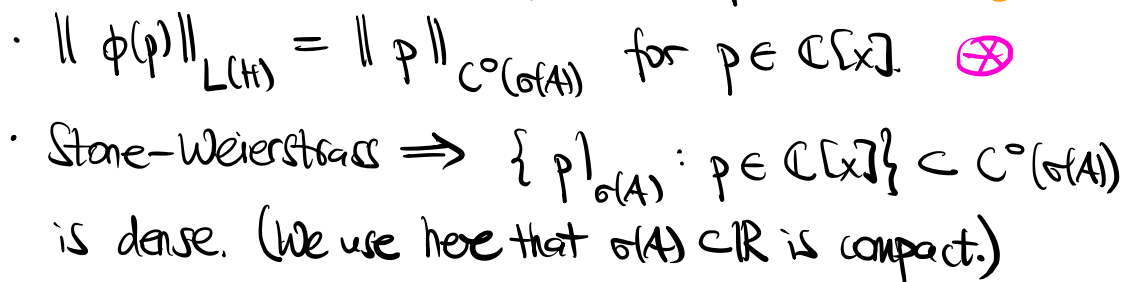 · ‖ φ(p) ‖_{L(H)} = ‖ p ‖_{C⁰(σ(A))} for p ∈ ℂ[x]. ⊛
· Stone-Weierstrass ⇒ { p|_{σ(A)} : p ∈ ℂ[x] } ⊂ C⁰(σ(A))
is dense. (We use here that σ(A) ⊂ ℝ is compact.)